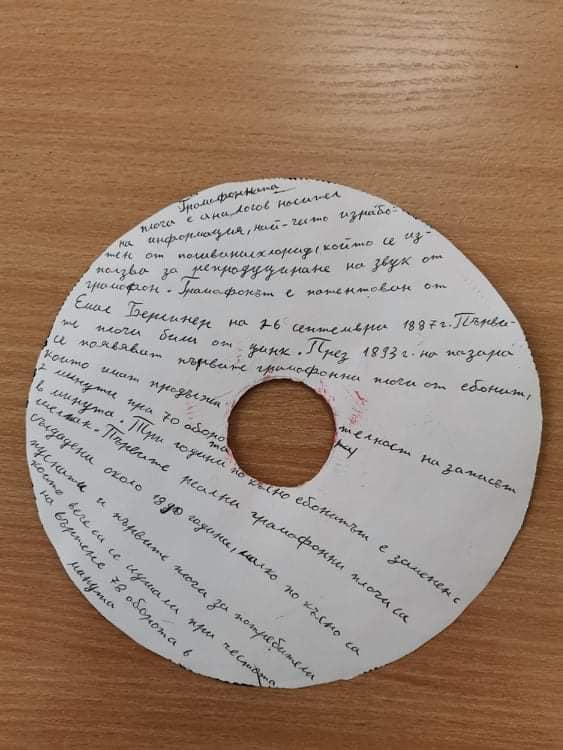 Грамофонната
плоча е аналогов носител
на информация, най-често израбо-
тен от поливинилхлорид, който се из-
ползва за репродуциране на звук от
грамофон. Грамофонът е патентован от
Емил Берлинер на 26 септември 1887 г. Първи-
те плочи били от цинк. През 1893 г. на пазара
се появяват първите грамофонни плочи от ебонит,
които имат продължителност на записът
2 минути при 70 оборота
в минута. Три години по късно ебонитът е заменен с
шеллак. Първите реални грамофонни плочи са
създадени около 1890 година, малко по късно са
пуснати и първите плочи за потребители
които вече са се слушали при честота
на въртене 78 оборота в
минута